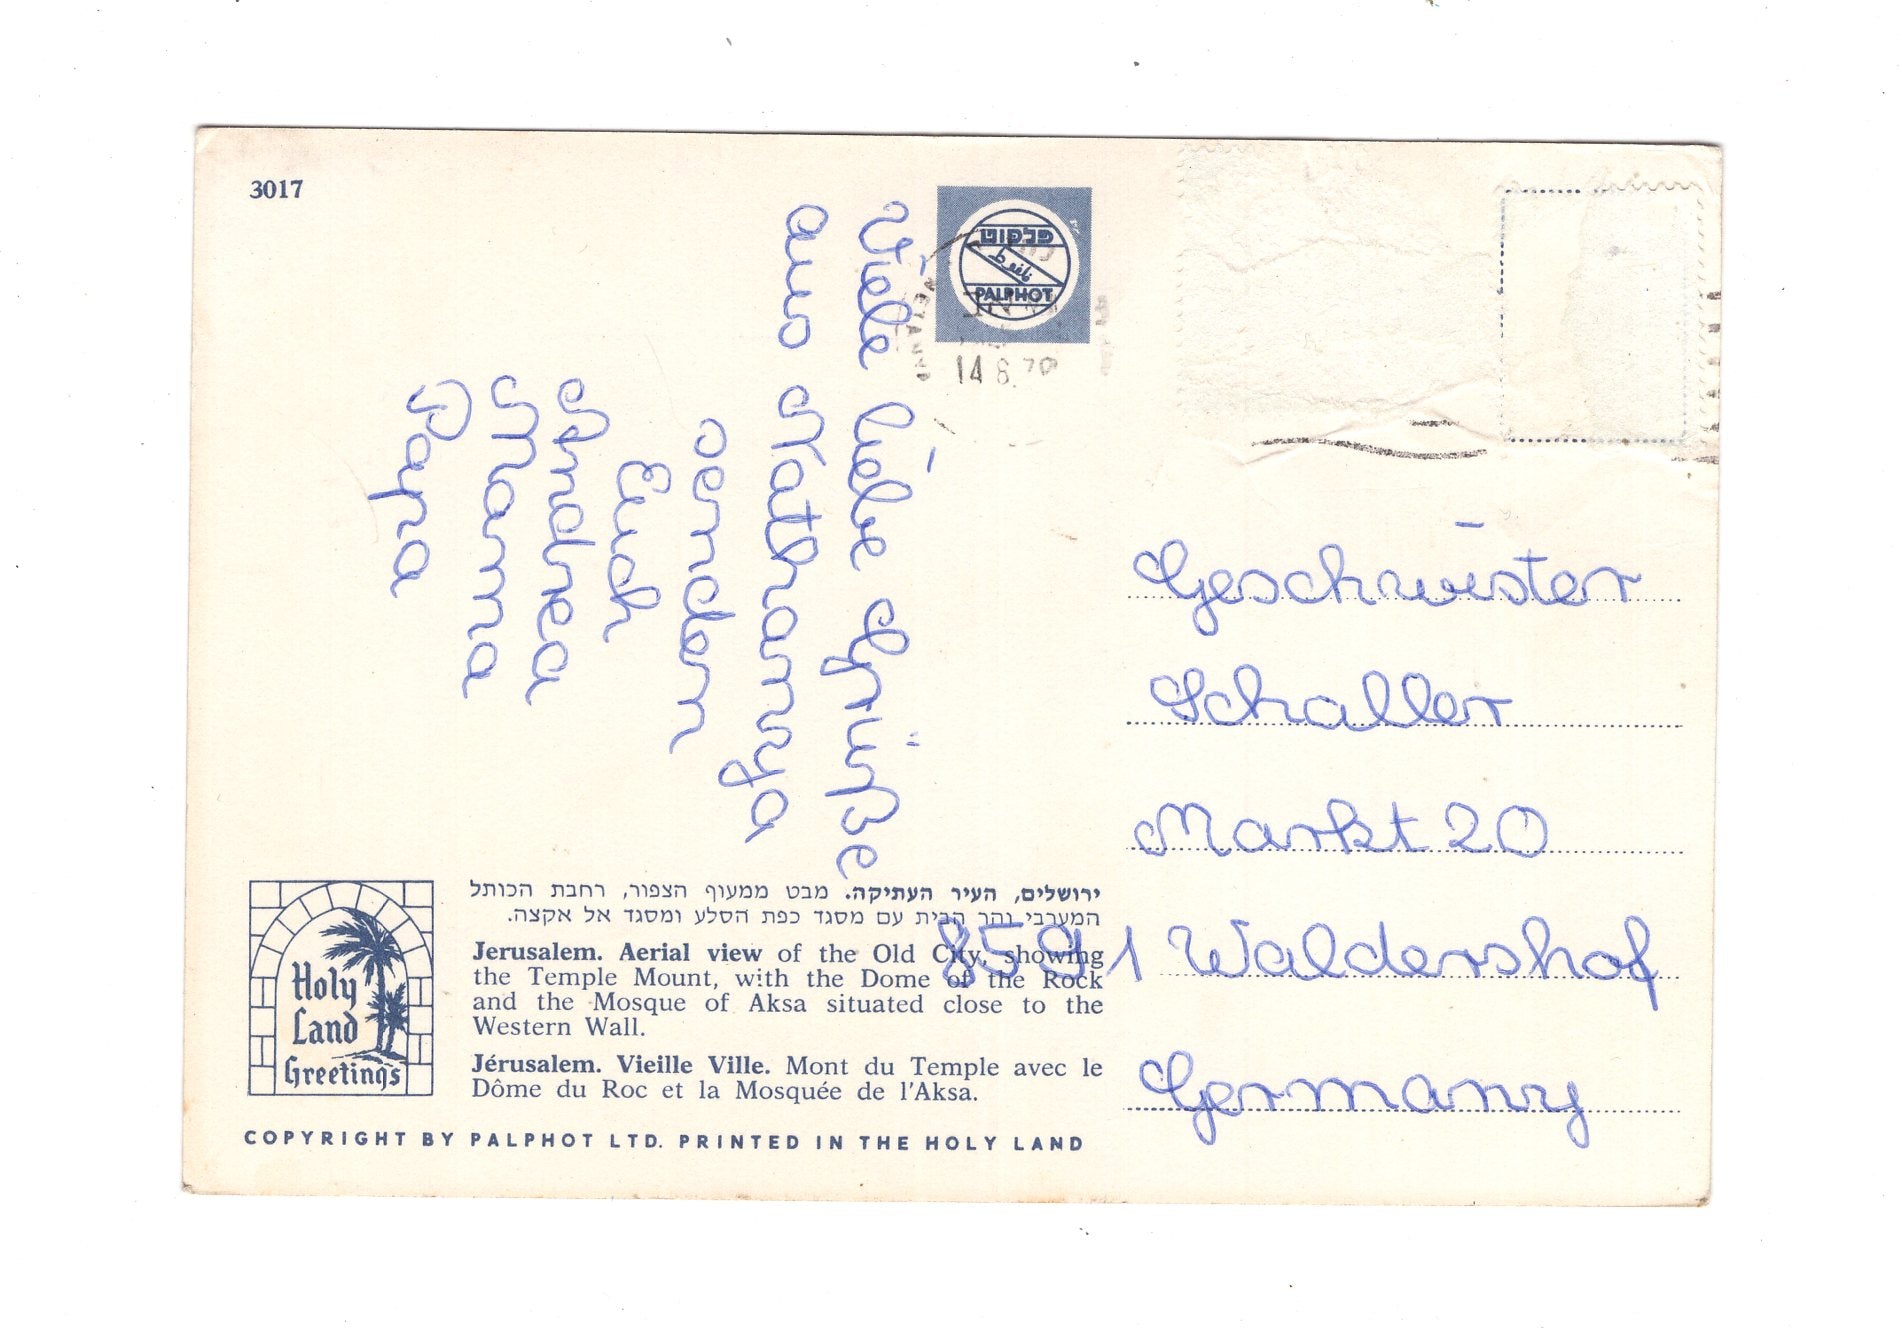 3017
פלפוט
PALPHOT
NETANYA
14 8. 79
Viele liebe Grüße
aus Nathannya
senden
Euch
Andrea
Mamma
Papa
Geschwister
Schaller
Markt 20
8591 Waldershof
Germany
ירושלים, העיר העתיקה. מבט ממעוף הצפור, רחבת הכותל
המערבי והר הבית עם מסגד כפת הסלע ומסגד אל אקצה.
Jerusalem. Aerial view of the Old City, showing
the Temple Mount, with the Dome of the Rock
and the Mosque of Aksa situated close to the
Western Wall.
Jérusalem. Vieille Ville. Mont du Temple avec le
Dôme du Roc et la Mosquée de l'Aksa.
Holy
Land
Greetings
COPYRIGHT BY PALPHOT LTD. PRINTED IN THE HOLY LAND